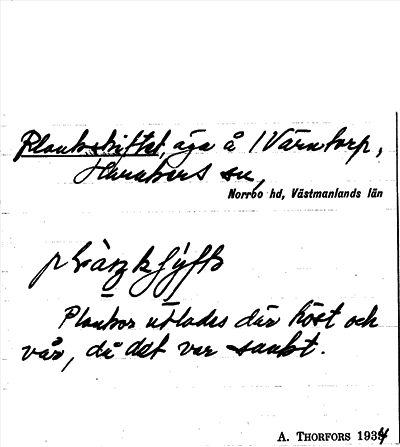 Plankskiftet, äga å 1 Värntorp,
Haraker s sn,
Norrbo hd, Västmanlands län
Plankor utlades där höst och
vår, då det var sankt.
A. THORFORS 1934